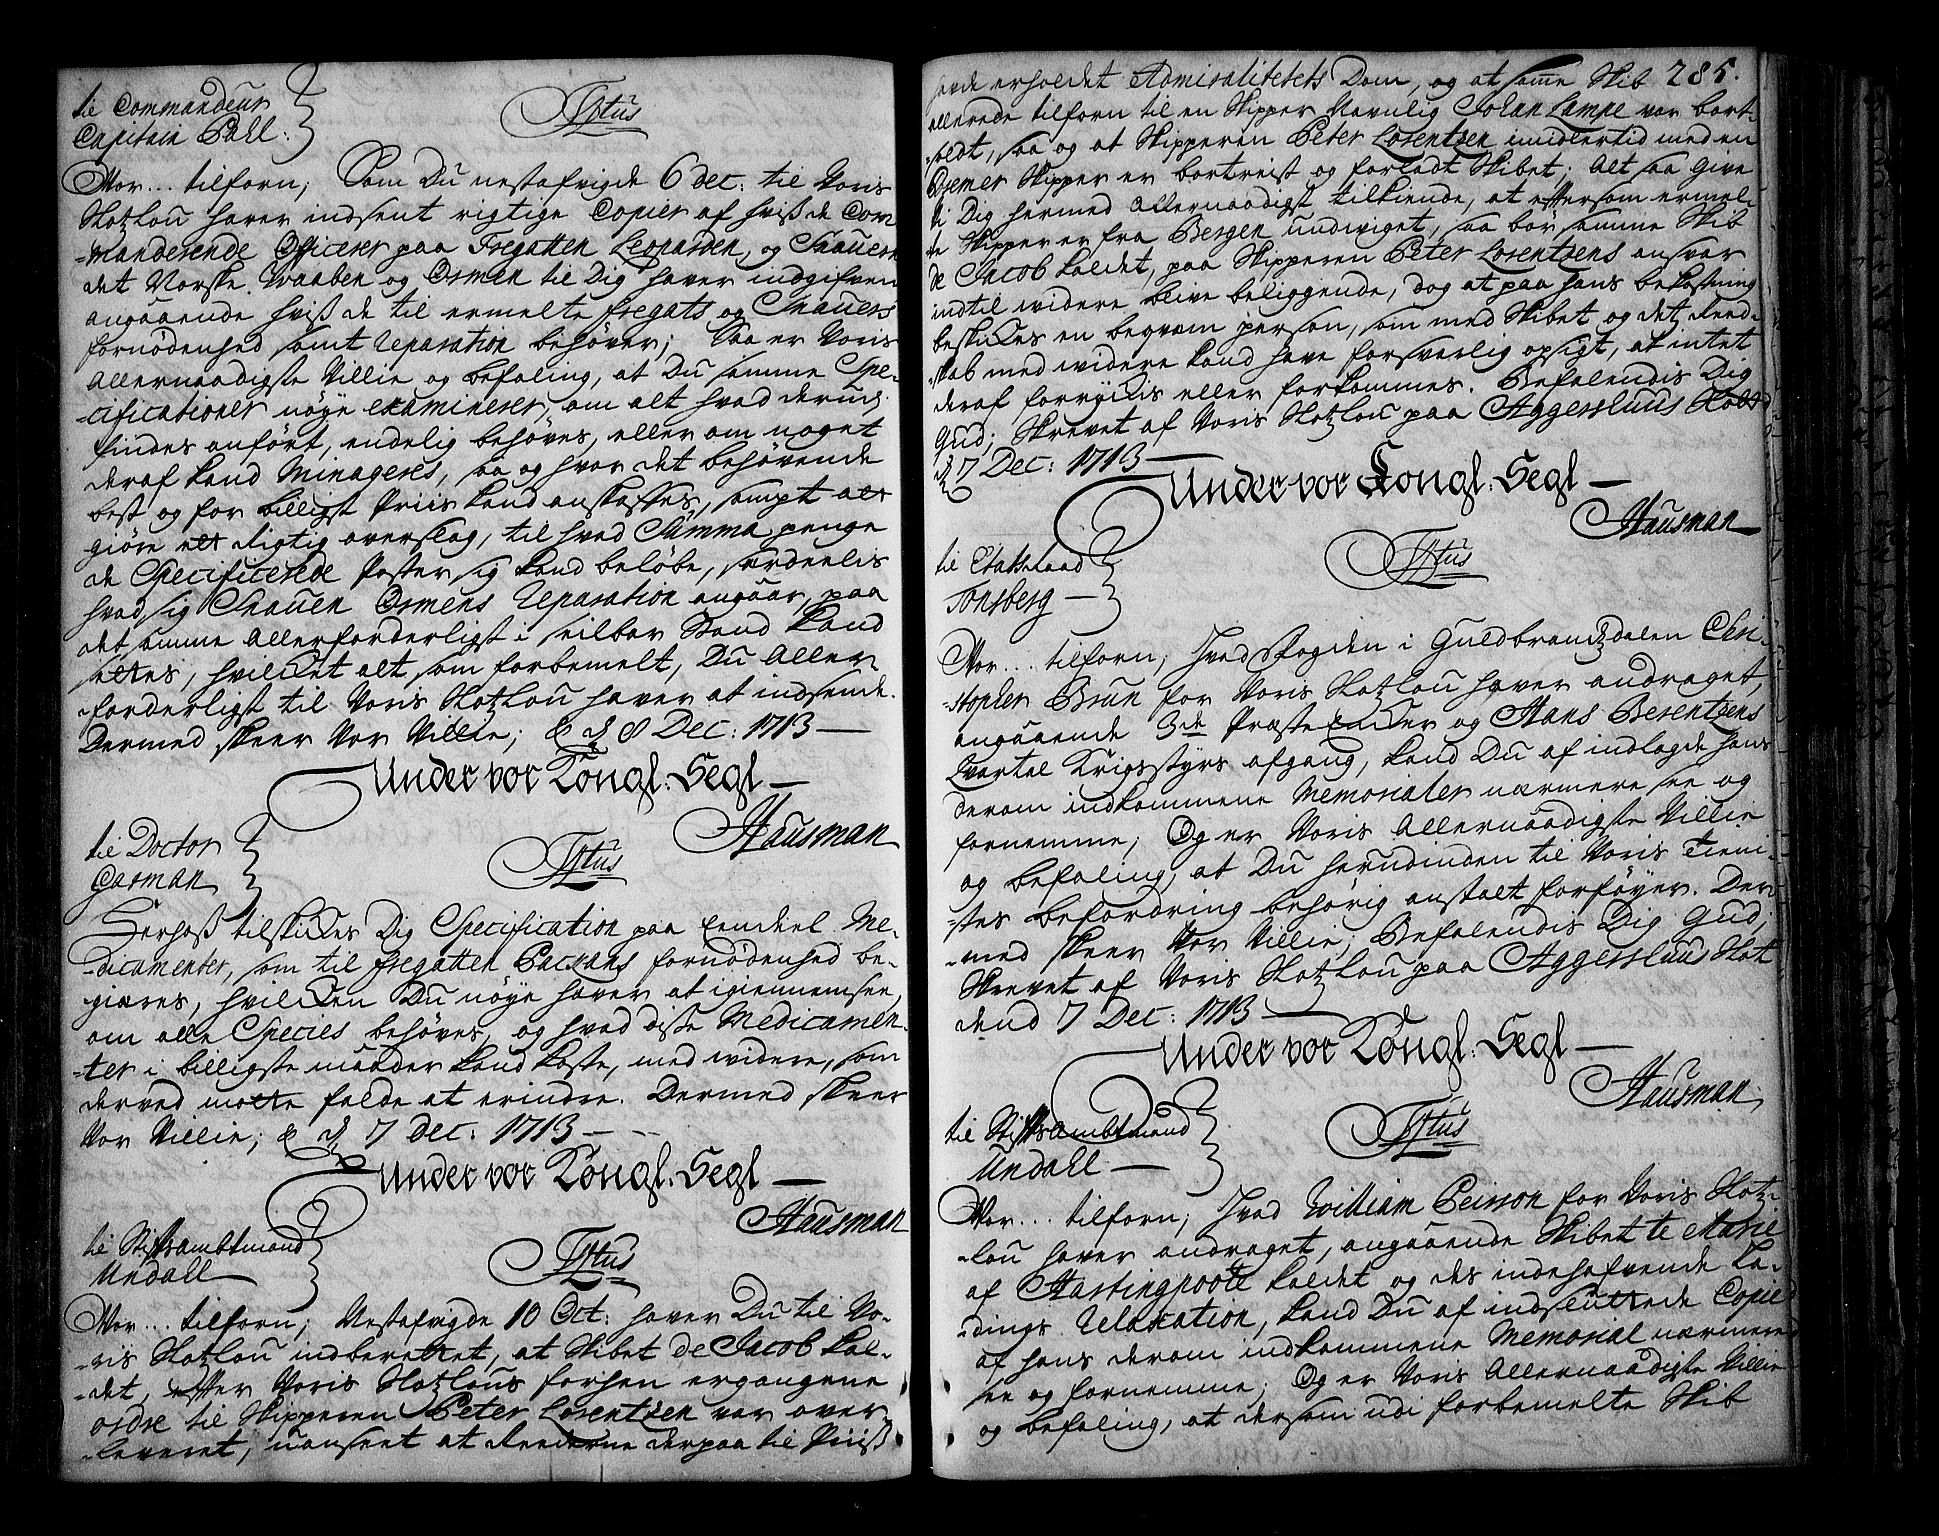 til Commandeur
Capitain Pahl.
Tÿtus
Vor... tilforn, Som Du nestafvigde 6 dec: til Voris
Slotzlou haver indsent rigtige Copier af hviß de Com-
-manderende Officerer paa Fregatten Leoparden, og Snauern
det Norske Waaben og Ørnen til Dig haver indgifven
angaaende hviß de til ermelte fregats og Snauers
fornødenhed samt reparation behøver; Saa er Voris
Allernaadigste Villie og befaling, at Du samme Spe-
-cificationer nøye examinerer, om alt hvad derudj
findes anført, endelig behøves, eller om noget
deraf kand Minageres, saa og hvor det behøvende
best og for billigst Priis kand anskaffes, sampt at
giøre et Rigtig overslag, til hvad Summa penge
de Specificerede Poster sig kand beløbe, særdeelis
hvad sig Snauen Ørnens Reparation angaar, paa
det samme Allerforderligst i seilbar Stand kand
settes, hvilcket alt som forbemelt, Du Aller-
-forderligst til Voris Slotzlou haver at indsende.
Dermed skeer Vor Villie; & d 8 Dec: 1713
Under vor Kongl: Segl
Hausman
til Doctor
Garman
Tÿtus
Herhoß tilskickes Dig Specification paa Eendeel Me-
-dicamenter, som til fregatten Packans fornødenhed be-
giæres, hvilcken Du nøye haver at igiennemsee,
om alle Species behøves, og hvad disse Medicamen-
-ter i billigste maader kand koste, med widere, som
derved motte falde at erindre. Dermed skeer
Vor Villie; & d 7 dec: 1713
Under vor Kongl: Segl
Hausman
til Stiftsambtmand
Undall
Tÿtus
Vor... tilforn, Nestafvigde 10 Oct: haver Du til Vo-
-ris Slotzlou indberettet, at Skibet de Jacob kal-
-det, efter Voris Slotzlous forhen ergangene
ordre til Skipperen Peter Lorentzen var over-
-leveret, uanseet at Reederne derpaa til Priiß
havde erholdet Admiralitetets Dom, og at samme Skib 285.
allerede tilforn til en Skipper Navnlig Johan Lampe var bort-
-soldt, saa og at Skipperen Peter Lorentzen imidlertid med en
Bremer Skipper er bortreist og forladt Skibet; Alt saa give
Vi Dig hermed Allernaadigst tilkiende, at eftersom ermel-
te Skipper er fra Bergen undviget, saa bør samme Skib
de Jacob kaldet, paa Skipperen Peter Lorentzens ansvar
indtil widere blive beliggende, dog at paa hans bekostning
beskickes en beqvem person, som med Skibet og det Reed-
-skab med widere kand have forsvarlig opsigt, at intet
deraf forryckis eller forkommes. Befalendis Dig
Gud; Skrevet af Voris Slotzlou paa Aggershuus Slott
d 7 Dec: 1713
Under vor Kongl: Segl
Hausman
til Etatsraad
Tonsberg
Tÿtus
Vor... tilforn, Hvad Fogden i Guldbrandzdalen Chri-
-stopher Brun for Voris Slotzlou haver andraget,
angaaende 3de Præste Encker og Hans Berentzens
Qvartal Krigsstyrs afgang, kand Du af indlagde hans
derom indkommene Memorialer nærmere see og
fornemme; Og er Voris Allernaadigste Villie
og befaling, at Du herudinden til Voris Tieni-
-stes befordring behørig anstalt forføyer. Der-
-med skeer Vor Villie; Befalendis Dig Gud;
Skrevet af Voris Slotzlou paa Aggershuus Slot
dend 7 Dec: 1713
Under vor Kongl: Segl
Hausman
til Stiftsambtmand
Undall
Tÿtus
Vor... tilforn; Hvad William Peirson for Voris Slotz-
-lou haver andraget, angaaende Skibet te Marie
af Hastingpoole kaldet og des indehafvende La-
-dings Relaxation, kand Du af indsluttede Copie
af hans derom indkommene Memorial nærmere
see og fornemme; Og er Voris Allernaadigste Villie
og befaling, at dersom udi forbemelte Skib